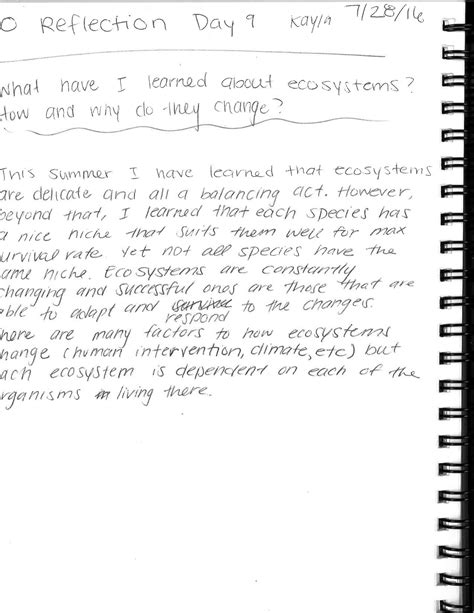 O Reflection Day 9 Kayla 7/28/16
What have I learned about ecosystems?
How and why do they change?
This summer I have learned that ecosystems
are delicate and all a balancing act. However,
beyond that, I learned that each species has
a nice niche that suits them well for max
survival rate. Yet not all species have the
same niche. Ecosystems are constantly
changing and successful ones are those that are
able to adapt and survive respond to the changes.
There are many factors to how ecosystems
change (human intervention, climate, etc) but
each ecosystem is dependent on each of the
organisms in living there.